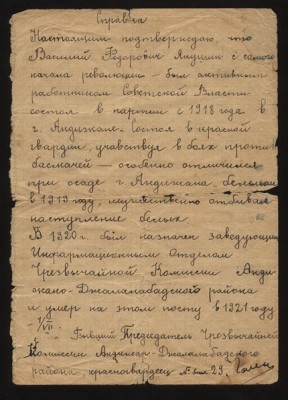 Справка
Настоящим подтверждаю, что
Василий Федорович Яушин с самого
начала революции был активным
работником Советской Власти
состоял в партии с 1918 года в
г. Андижане. Состоял в красной
гвардии, участвуя в боях против
басмачей — особенно отличился
при осаде г. Андижана белыми
в 1919 году, мужественно отбивая
наступление белых.
В 1920 г. был назначен заведующим
Информационным Отделом
Чрезвычайной Комиссии Анди
жано-Джалалабадского района
и умер на этом посту в 1921 году
Бывший Председатель Чрезвычайной
Комиссии Андижан-Джалалабадского
района, красногвардеец